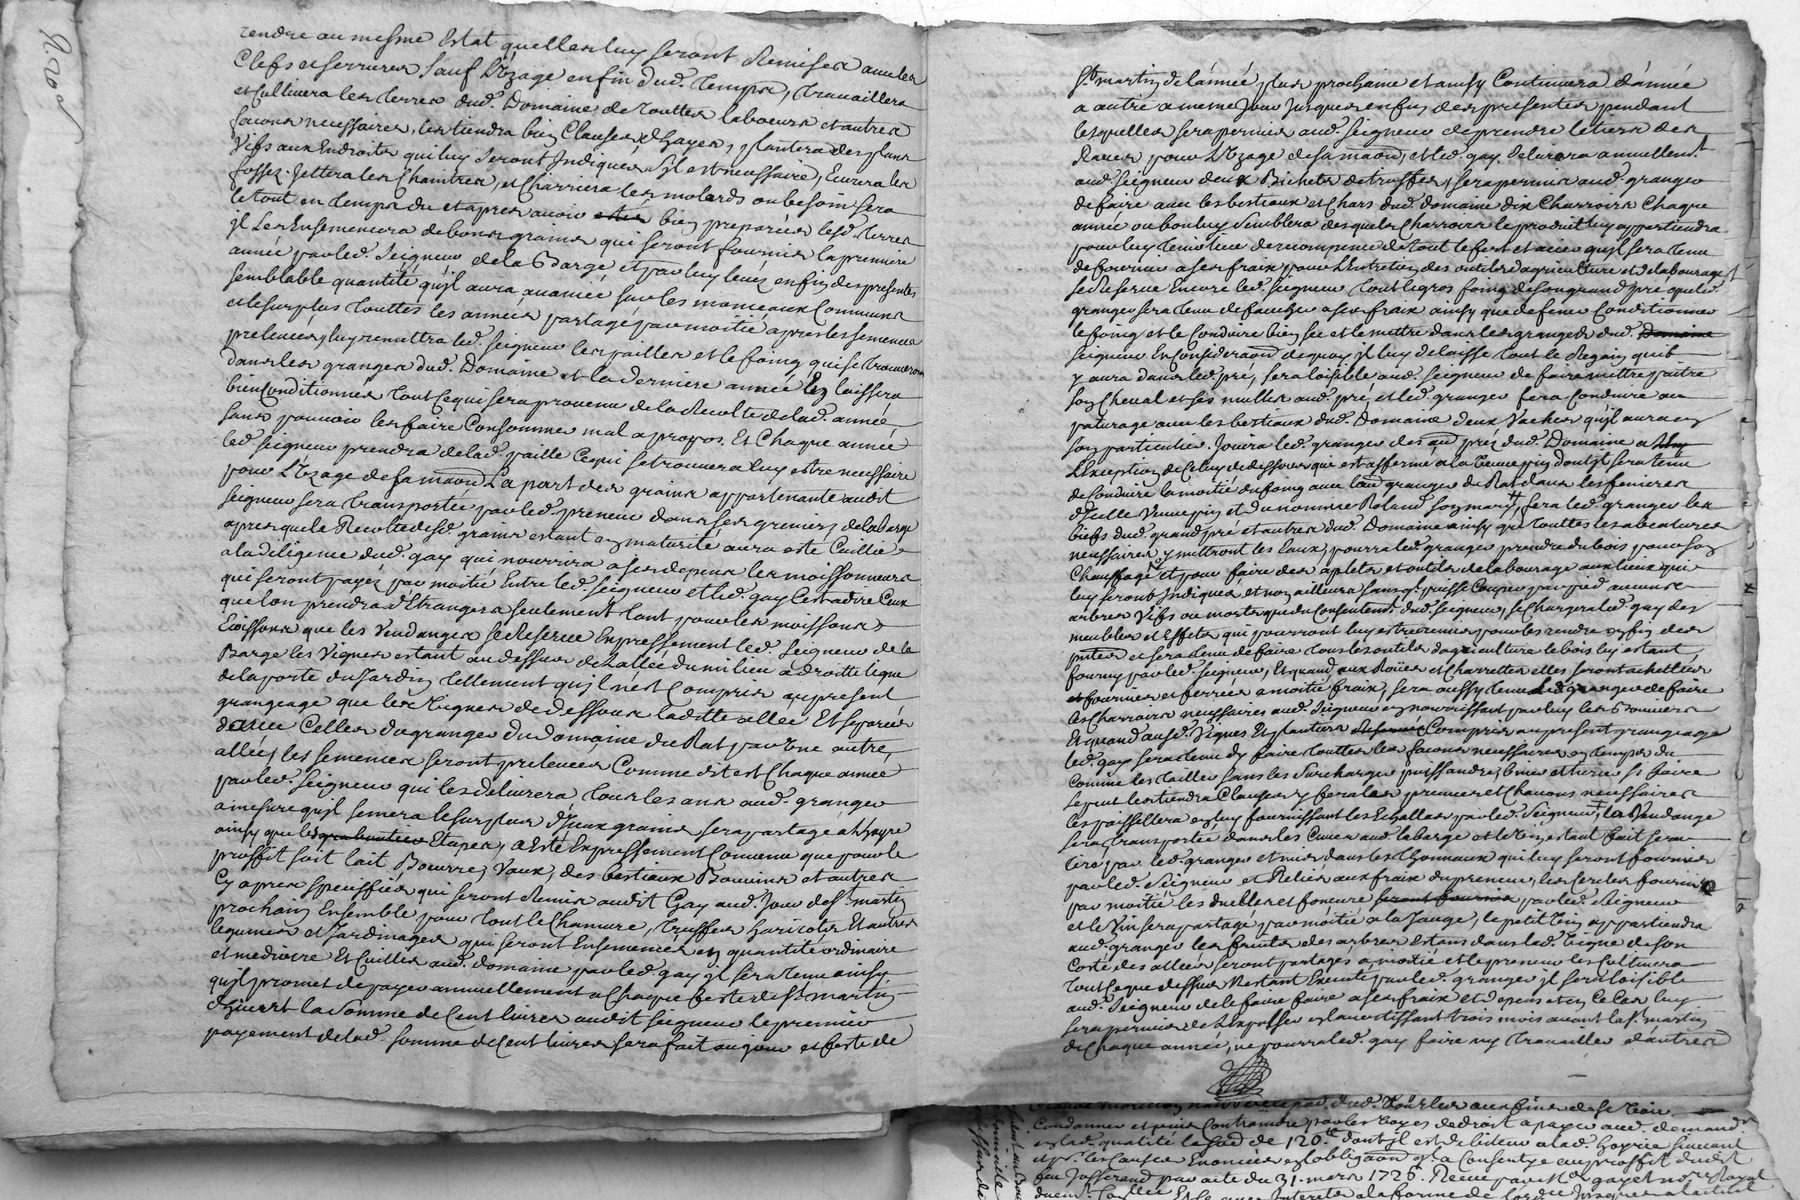 rendre au mesme Estat quelles luy seront Remises avec les
Clefs et serrures sauf L'Vzage en fin dud. temps, travaillera
et Cultivera les terres dud. Domaine de touttes laboeurs et autres
facons necessaires, les tiendra bien Clauses d'hayes, plantera des plans
Vifs aux Endroits qui luy seront Indiqués s'il est necessaire, Curera les
fossez Jettera les Chaintres, et Charriera les molards ou besoin sera
le tout en temps du et apres avoir bien preparées lesd. terres
jl Les Ensemencera de bons grains qui seront fournis la premiere
année par led. seigneur de la Barge et par luy levez en fin des presentes
semblable quantité qu'jl aura avancée sur les monceaux Communs
et le surplus touttes les années partagé par moitié apres les semences
prelevées, luy remettra led. seigneur les pailles et le foing qui se trouveront
dans les granges dud. Domaine et la derniere année les laissera
bien Conditionnés tout ce qui sera provenu de la Recolte de lad. année
sans pouvoir les faire Consommer mal a propos. Et Chaque année
led. seigneur prendra de lad. paille ce qui se trouvera luy estre necessaire
pour L'Vzage de sa maon La part des grains appartenante audit
seigneur sera transportée par led. preneur dans ses greniers de la Barge
apres que la Recolte desd. grains estant en maturité aura esté Cuillie
a la diligence dud. gay qui nourrira a ses depens les moissonneurs
qui seront payéz par moitié Entre led. seigneur et led. gay C'est a dire Ceux
que lon prendra d'Etrangers seulement tant pour les moissons
que les Vendanges se Reserve Expressement led. seigneur de la
Barge les Vignes estant au dessus de l'allée du milieu a droitte ligne
de la porte du Jardin tellement qu'jl n'est Compris au present
grangeage que les Vignes de dessous laditte allée Et separées
d'avec Celles du granger du domaine du Rat par Vne autre
allée, les semences seront prelevées Comme dit est Chaque année
par led. seigneur qui les delivrera tous les ans aud. granger
a mesure qu'jl semera le surplus d'Jceux grains sera partagé
ainsy que les Etapes, a Esté Expressement Convenu que pour le
proffit soit lait Beurre, Vaux, des bestiaux Bovins et autres
Cy apres speciffiés qui seront Remis audit Gay aud. Jour de st. martin
prochain Ensemble pour tout le Chanvre, truffes haricots Et autres
legumes et Jardinages qui seront Ensemencés en quantité ordinaire
et mediocre Et Cuillis aud. domaine par led. gay jl sera tenu ainsy
qu'jl promet de payer annuellement a Chaque feste de st. martin
d'hivert la somme de Cent livres audit seigneur le premier
payement de lad. somme de Cent livres sera fait au jour et feste de
st. martin de l'année plus prochaine et ainsy Continuera d'année
a autre a meme Jour Jusques en fin des presentes pendant
lesquelles sera permis aud. seigneur de prendre le tiers des
Raves pour L'Vzage de sa maon, et led. gay delivrera annuellemt.
aud. seigneur deux Bichets de truffes, sera permis aud. granger
de faire avec les bestiaux et Chars dud. domaine dix Charroirs Chaque
année ou bon luy semblera desquels Charroirs le produit luy appartiendra
pour luy tenir lieu de recompence de tout le fert et acier qu'jl sera tenu
de fournir a ses fraix pour L'Entretien des outils d'agriculture et de labourage
se Reserve Encore led. seigneur tout le gros foing de son grand pré que led.
granger sera tenu de faucher a ses fraix ainsy que de fener Conditionner
le foing et le Conduire bien sec et le mettre dans les granges dud. Domaine
seigneur En consideraon de quoy jl luy delaisse tout le Regain qu'il
y aura dans led. pré, sera loisible aud. seigneur de faire mettre paitre
son Cheval et ses mulles aud. pré, et led. granger fera Conduire au
paturage avec les bestiaux dud. Domaine deux Vaches qu'jl aura en
son particulier. Jouira led. granger des prez dud. Domaine a
L'Exception de Celuy de dessous qui est affermé a la Veuve dont jl sera tenu
de Conduire la moitié du foing avec le granger du Rat dans les fenieres
d'Jcelle Veuve et du nommé Roland son mary, fera led. granger les
biefs dud. grand pré et autres dud. Domaine ainsy que touttes les abecatures
necessaires y mettront les Eaux, pourra led. granger prendre du bois pour son
Chauffage et pour faire des aplets et outils de labourage aux lieux qui
luy seront Indiqués et non ailleurs sans qu'il puisse Couper par pied aucuns
arbres Vifs ou morts que du Consentemt. dud. seigneur, se Chargera led. gay des
meubles et Effets qui pourront luy estre remis pour les rendre en fin des
pntes et sera tenu de faire tous les outils d'agriculture le bois luy estant
fourny par led. seigneur, Et quand aux Roües et Charrettes elles seront achettées
et fournies et ferrées a moitié fraix, sera aussy tenu led. granger de faire
les Charroirs necessaires aud. seigneur en nourrissant par luy les Bouviers
Et quand ausd. Vignes Et plantiers Compris au present grangeage
led. gay sera tenu dy faire touttes les facons necessaires en temps du
Comme les tailler sans les surcharger, puissandre, biner et tiercer si faire
se peut les tiendra Clauses y fera les provins et Chavons necessaires
les paissellera en luy fournissant les Echallas par led. seigneur, la Vendange
sera transportée dans les Cuves aud. la barge et le Vin estant fait sera
tiré par led. granger et mis dans les thonneaux qui luy seront fournis
par led. seigneur et Reliés aux fraix du preneur, les Cercles fournis
par moitié les duelles et fonçure par led. seigneur
et le Vin sera partagé par moitié a la Jauge, le petit Vin appartiendra
aud. granger les fruits des arbres estans dans lad. Vigne de son
costé des allées seront partagés a moitié et le preneur les Cultivera
tout ce que dessus Restant Execute par led. granger jl sera loisible
aud. seigneur de le faire faire a ses fraix Et depens et en ce Cas luy
sera permis de L'Expulser en l'avertissant trois mois avant la st. martin
de Chaque année, ne pourra led. gay faire ny travailler d'autres
Condamner et Contraindre par les voyes de droit a payer aud. demand.
en lad. qualité la somme de 120.ll dont jl est debiteur a lad. hoyrie suivant
et pr. les Causes Enoncées en l'obligaon qu'jl a Consentye au proffit dudit
feu Josserand par acte du 31. mars 1726. Receu par Me gayet nore Royal